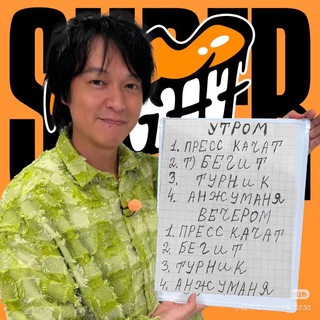 SUPER
УТРОМ
1. ПРЕСС КАЧАТ
2. Т) БЕГИТ
3. ТУРНИК
4. АНЖУМАНЯ
ВЕЧЕРОМ
1. ПРЕСС КАЧАТ
2. БЕГИТ
3. ТУРНИК
4. АНЖУМАНЯ